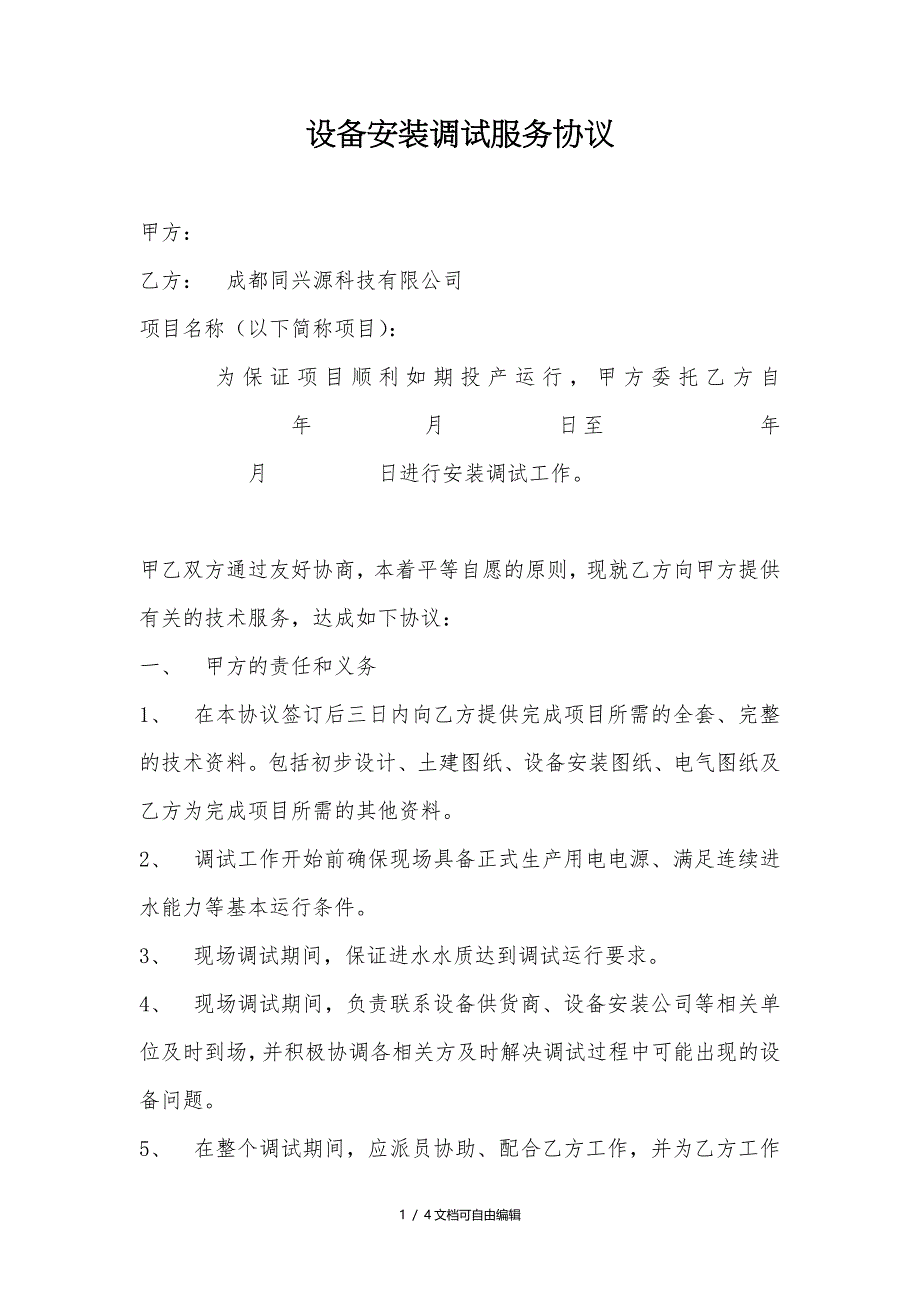 设备安装调试服务协议
甲方：
乙方： 成都同兴源科技有限公司
项目名称（以下简称项目）：
为保证项目顺利如期投产运行，甲方委托乙方自
年 月 日至 年
月 日进行安装调试工作。
甲乙双方通过友好协商，本着平等自愿的原则，现就乙方向甲方提供
有关的技术服务，达成如下协议：
一、 甲方的责任和义务
1、 在本协议签订后三日内向乙方提供完成项目所需的全套、完整
的技术资料。包括初步设计、土建图纸、设备安装图纸、电气图纸及
乙方为完成项目所需的其他资料。
2、 调试工作开始前确保现场具备正式生产用电电源、满足连续进
水能力等基本运行条件。
3、 现场调试期间，保证进水水质达到调试运行要求。
4、 现场调试期间，负责联系设备供货商、设备安装公司等相关单
位及时到场，并积极协调各相关方及时解决调试过程中可能出现的设
备问题。
5、 在整个调试期间，应派员协助、配合乙方工作，并为乙方工作
1 / 4文档可自由编辑